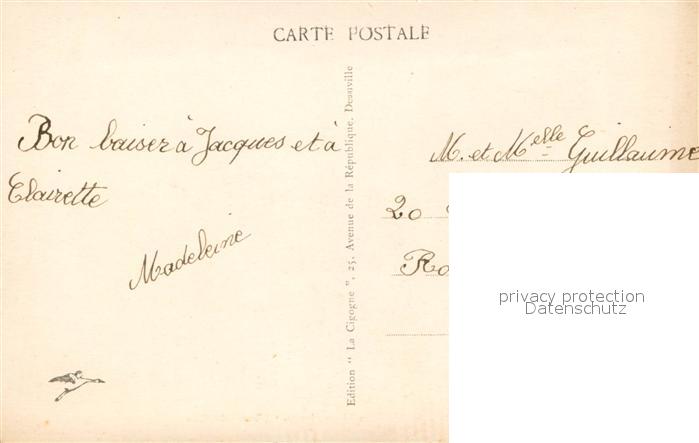 CARTE POSTALE
Bon baiser à Jacques et à
Clairette
Madeleine
Edition " La Cigogne ", 25, Avenue de la République, Deauville
M. et Melle Guillaume
20
privacy protection
Datenschutz